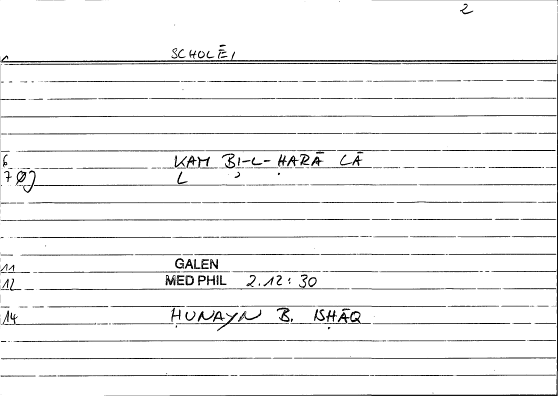 2
SCHOLĒI
6 KAM BI-L-ḤARĀ LĀ
7 Ø] L
11 GALEN
12 MED PHIL 2.12:30
14 ḤUNAYN B. ISḤĀQ